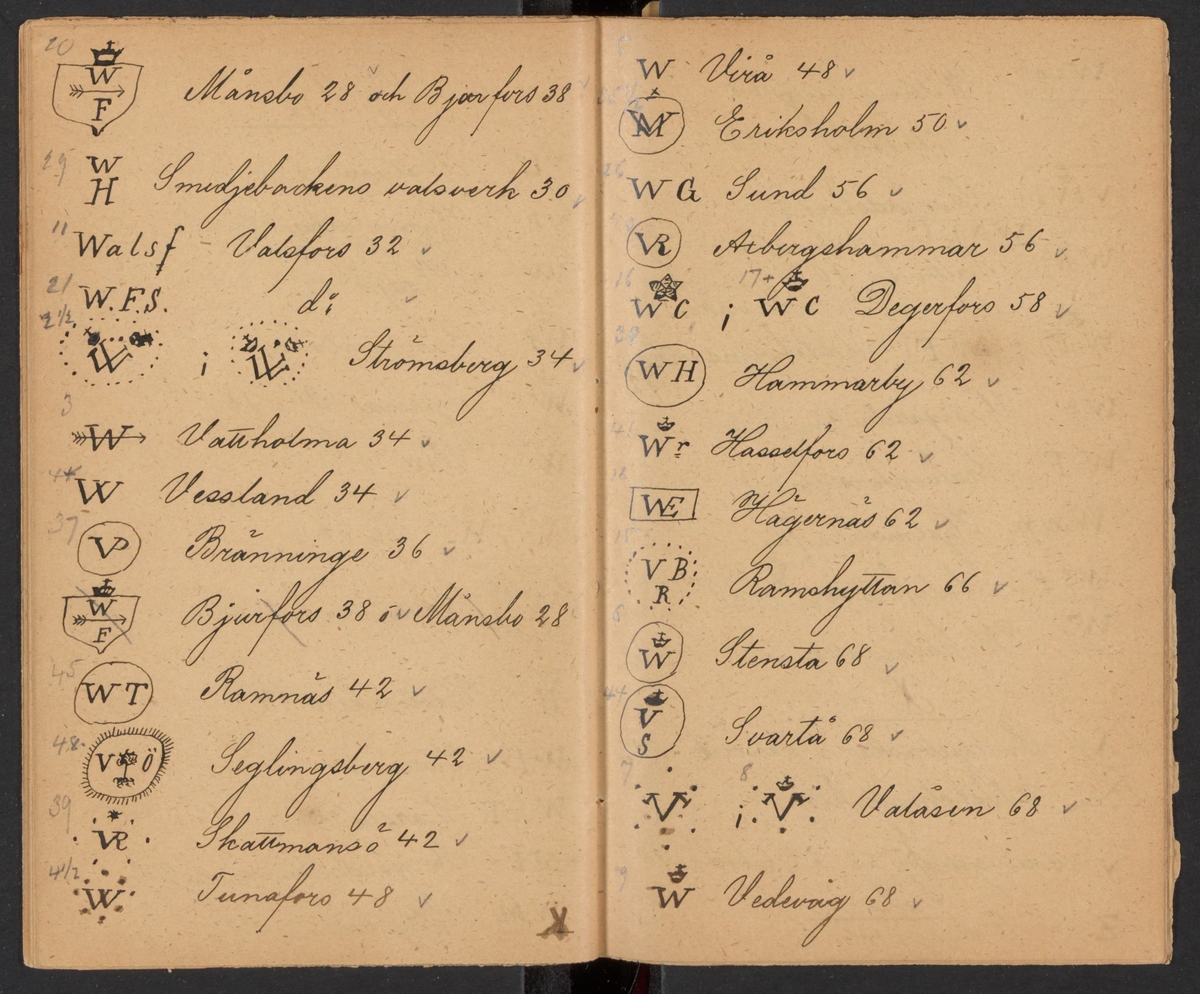 20
W F Månsbo 28 och Bjurfors 38
29
W H Smedjebackens valsverk 30
11
Walsf - Valsfors 32
21
W.F.S. do
2 1/2
W ; W Strömsberg 34
3
W Vattholma 34
44
W Vessland 34
37
VP Bränninge 36
W F Bjurfors 38 o Månsbo 28
45
WT Ramnäs 42
48
V Ö Seglingsberg 42
39
VR Skattmansö 42
4 1/2
W Tunafors 48
W Virå 48
W Eriksholm 50
26
WG Sund 56
VR Arbergshammar 56
16 17+
WC ; WC Degerfors 58
38
WH Hammarby 62
Wr Hasselfors 62
WE Hägernäs 62
15
V B R Ramshyttan 66
6
W Stensta 68
44
V S Svartå 68
7 8
V ; V Valåsen 68
9
W Vedevåg 68